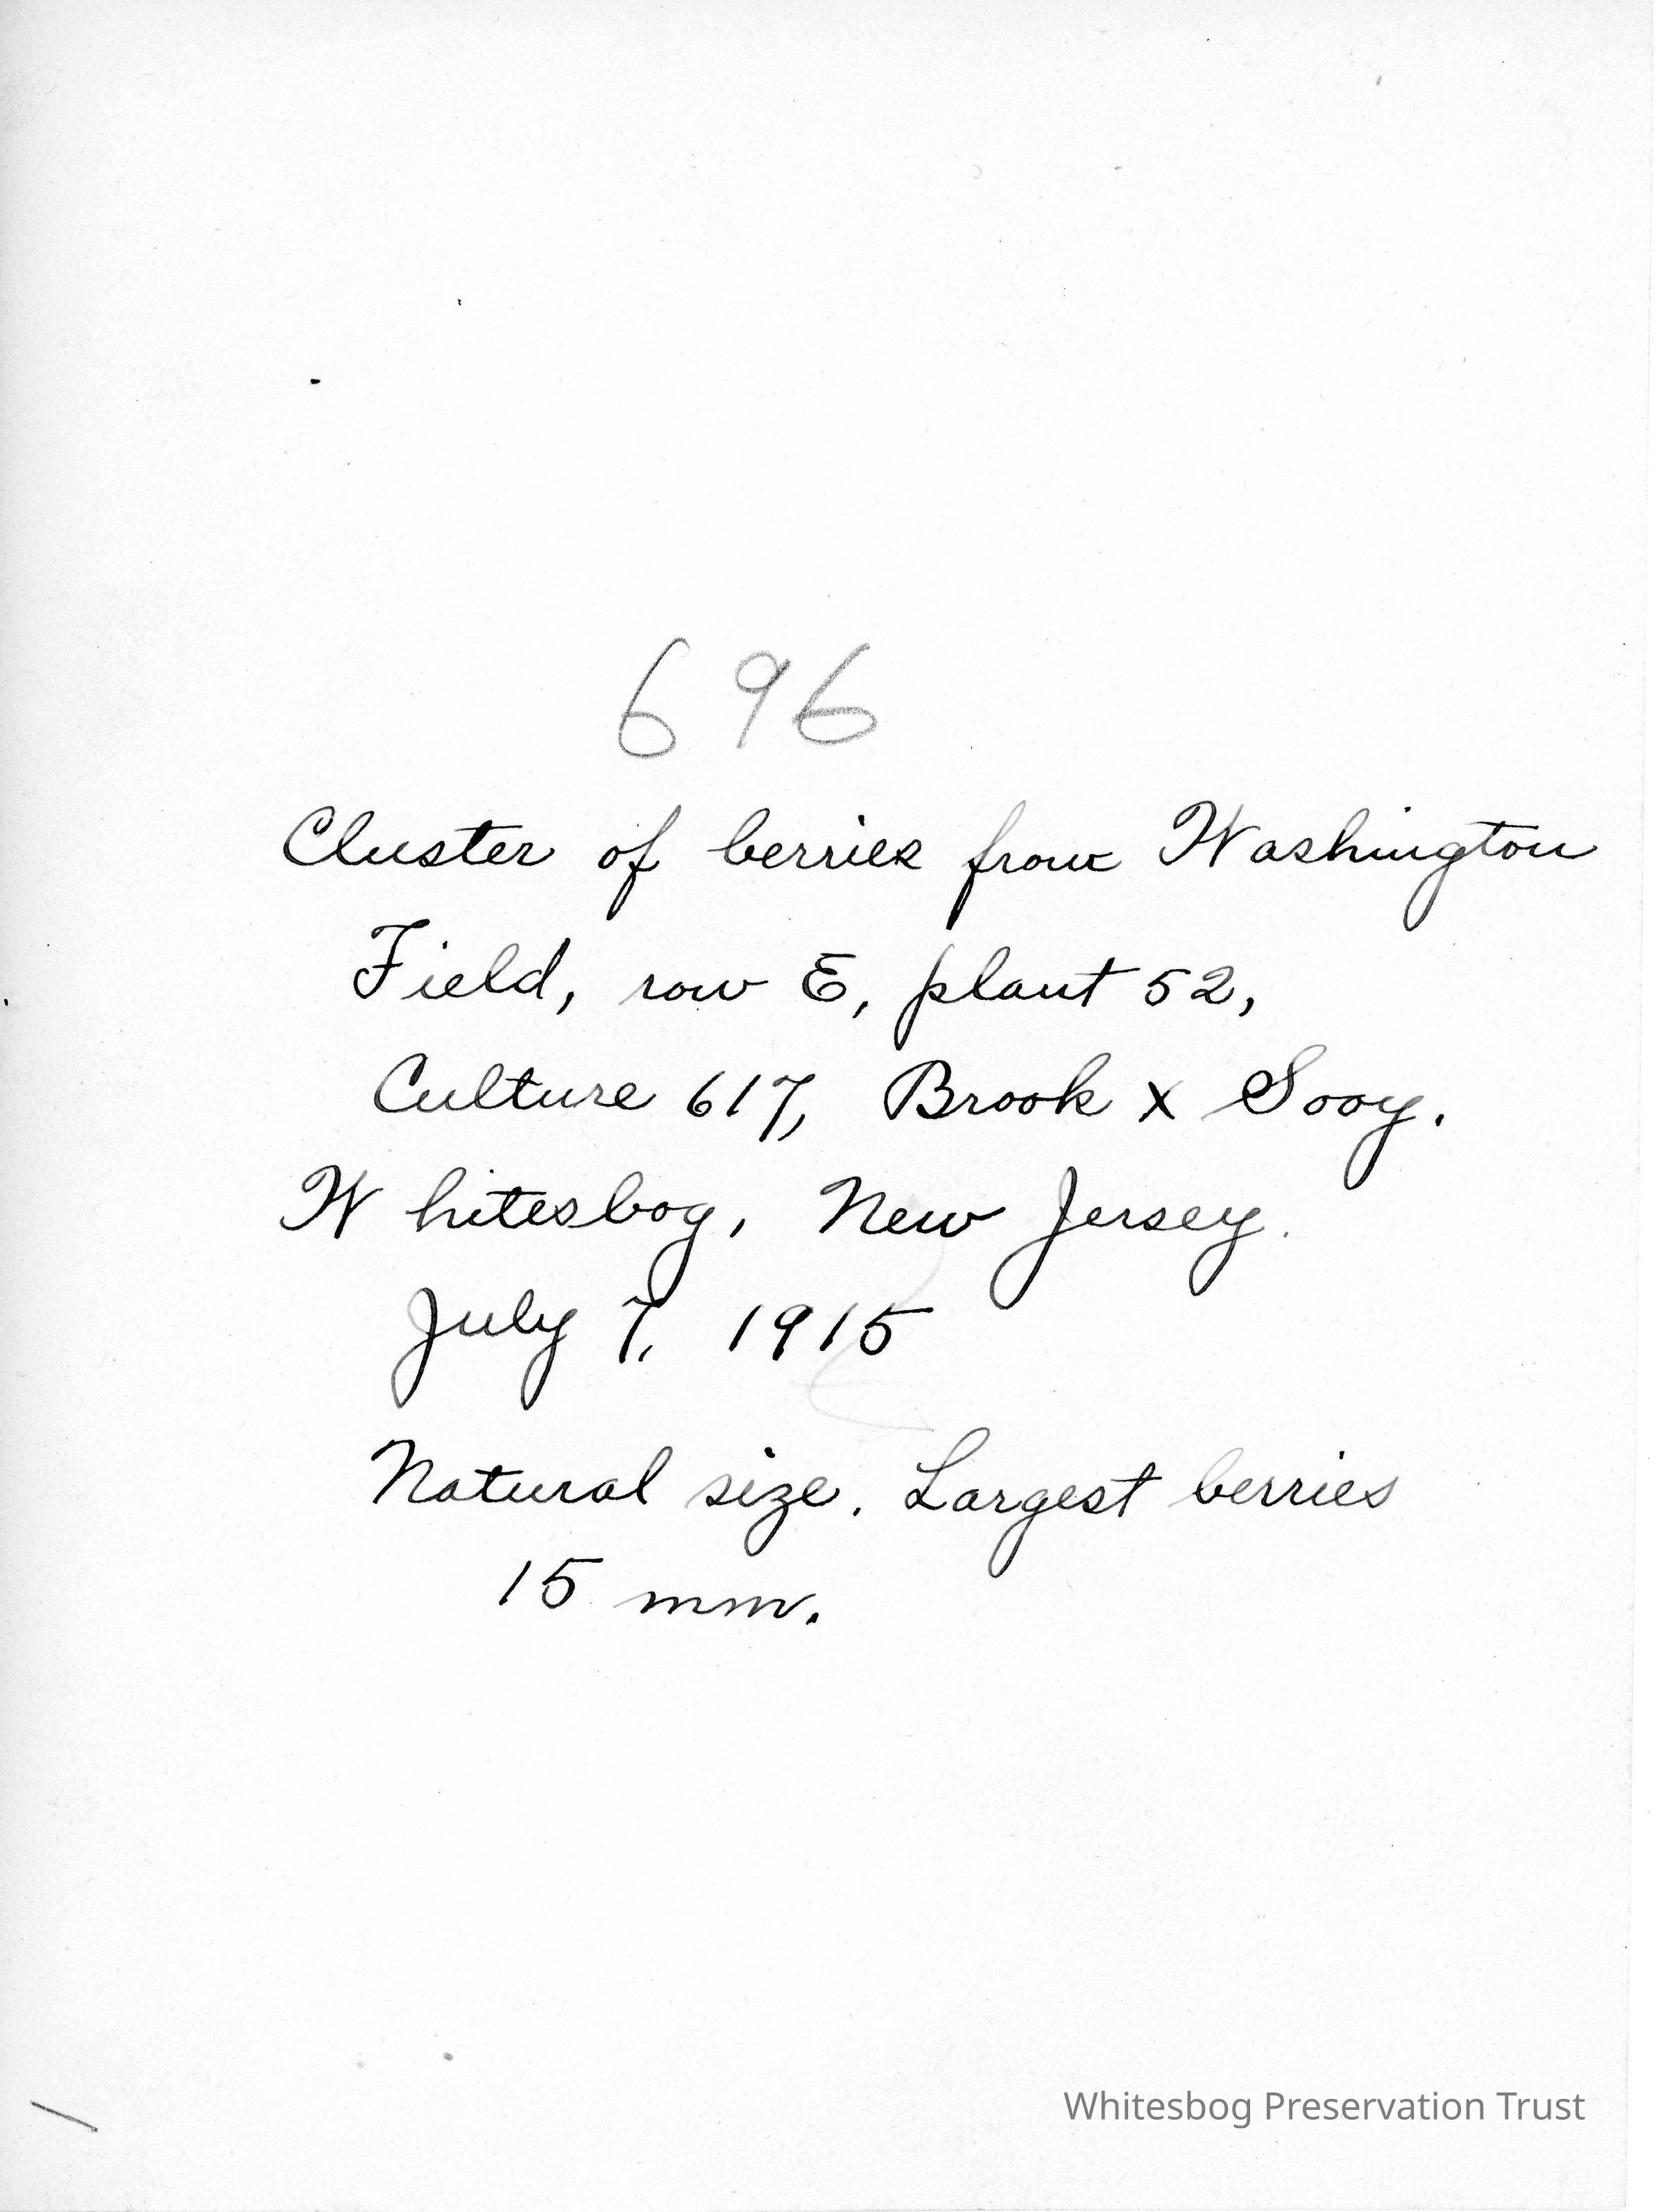 696
Cluster of berries from Washington
Field, row E, plant 52,
Culture 617, Brook x Sooy.
Whitesbog, New Jersey.
July 7, 1915
Natural size. Largest berries
15 mm.
Whitesbog Preservation Trust